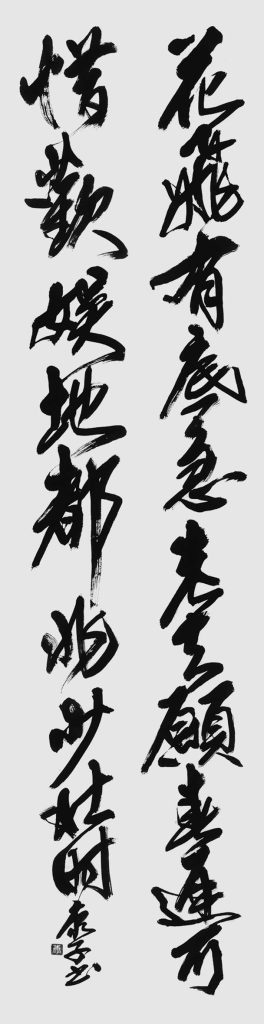 花飛有底急老去願春遲可
惜歡娱地都非少壮时